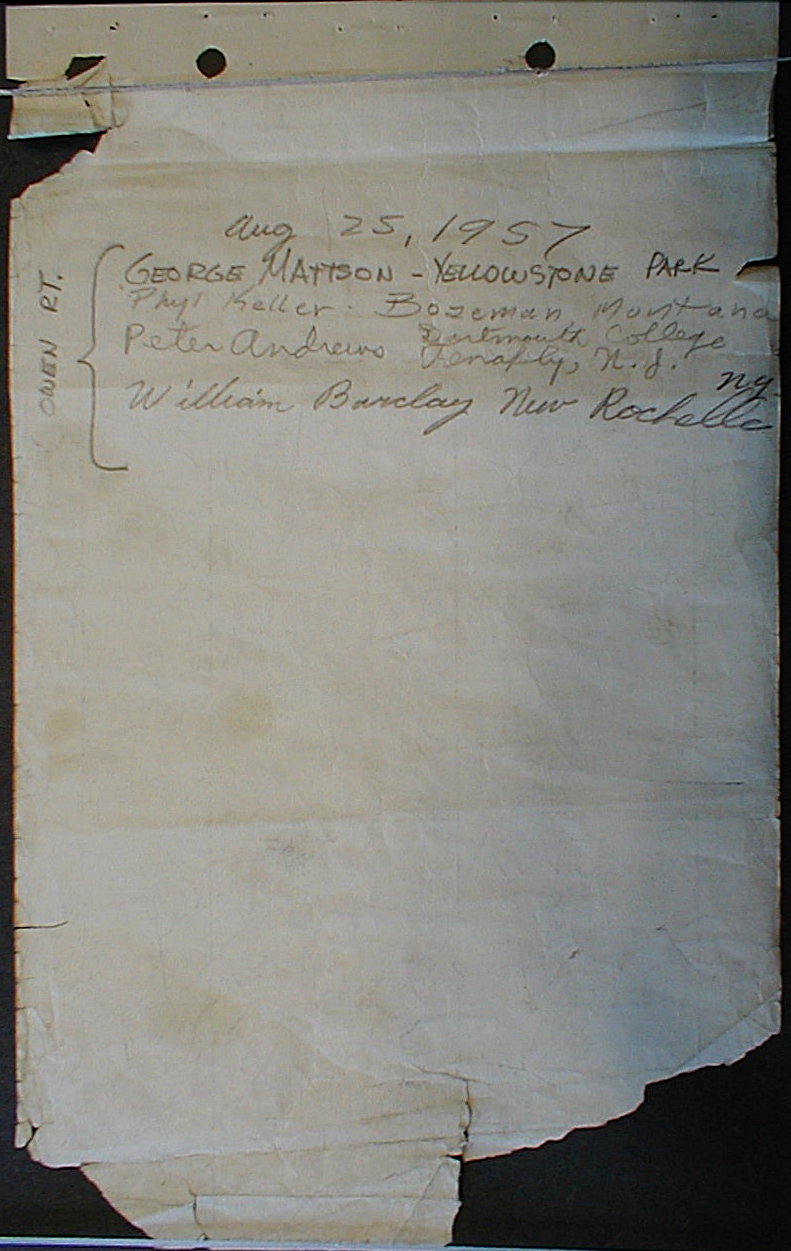 Aug 25, 1957
OWEN RT.
GEORGE MATTSON - YELLOWSTONE PARK
Phyl Keller - Bozeman, Montana
Peter Andrews Dartmouth College
Tenafly, N.J.
William Barclay New Rochelle N.Y.